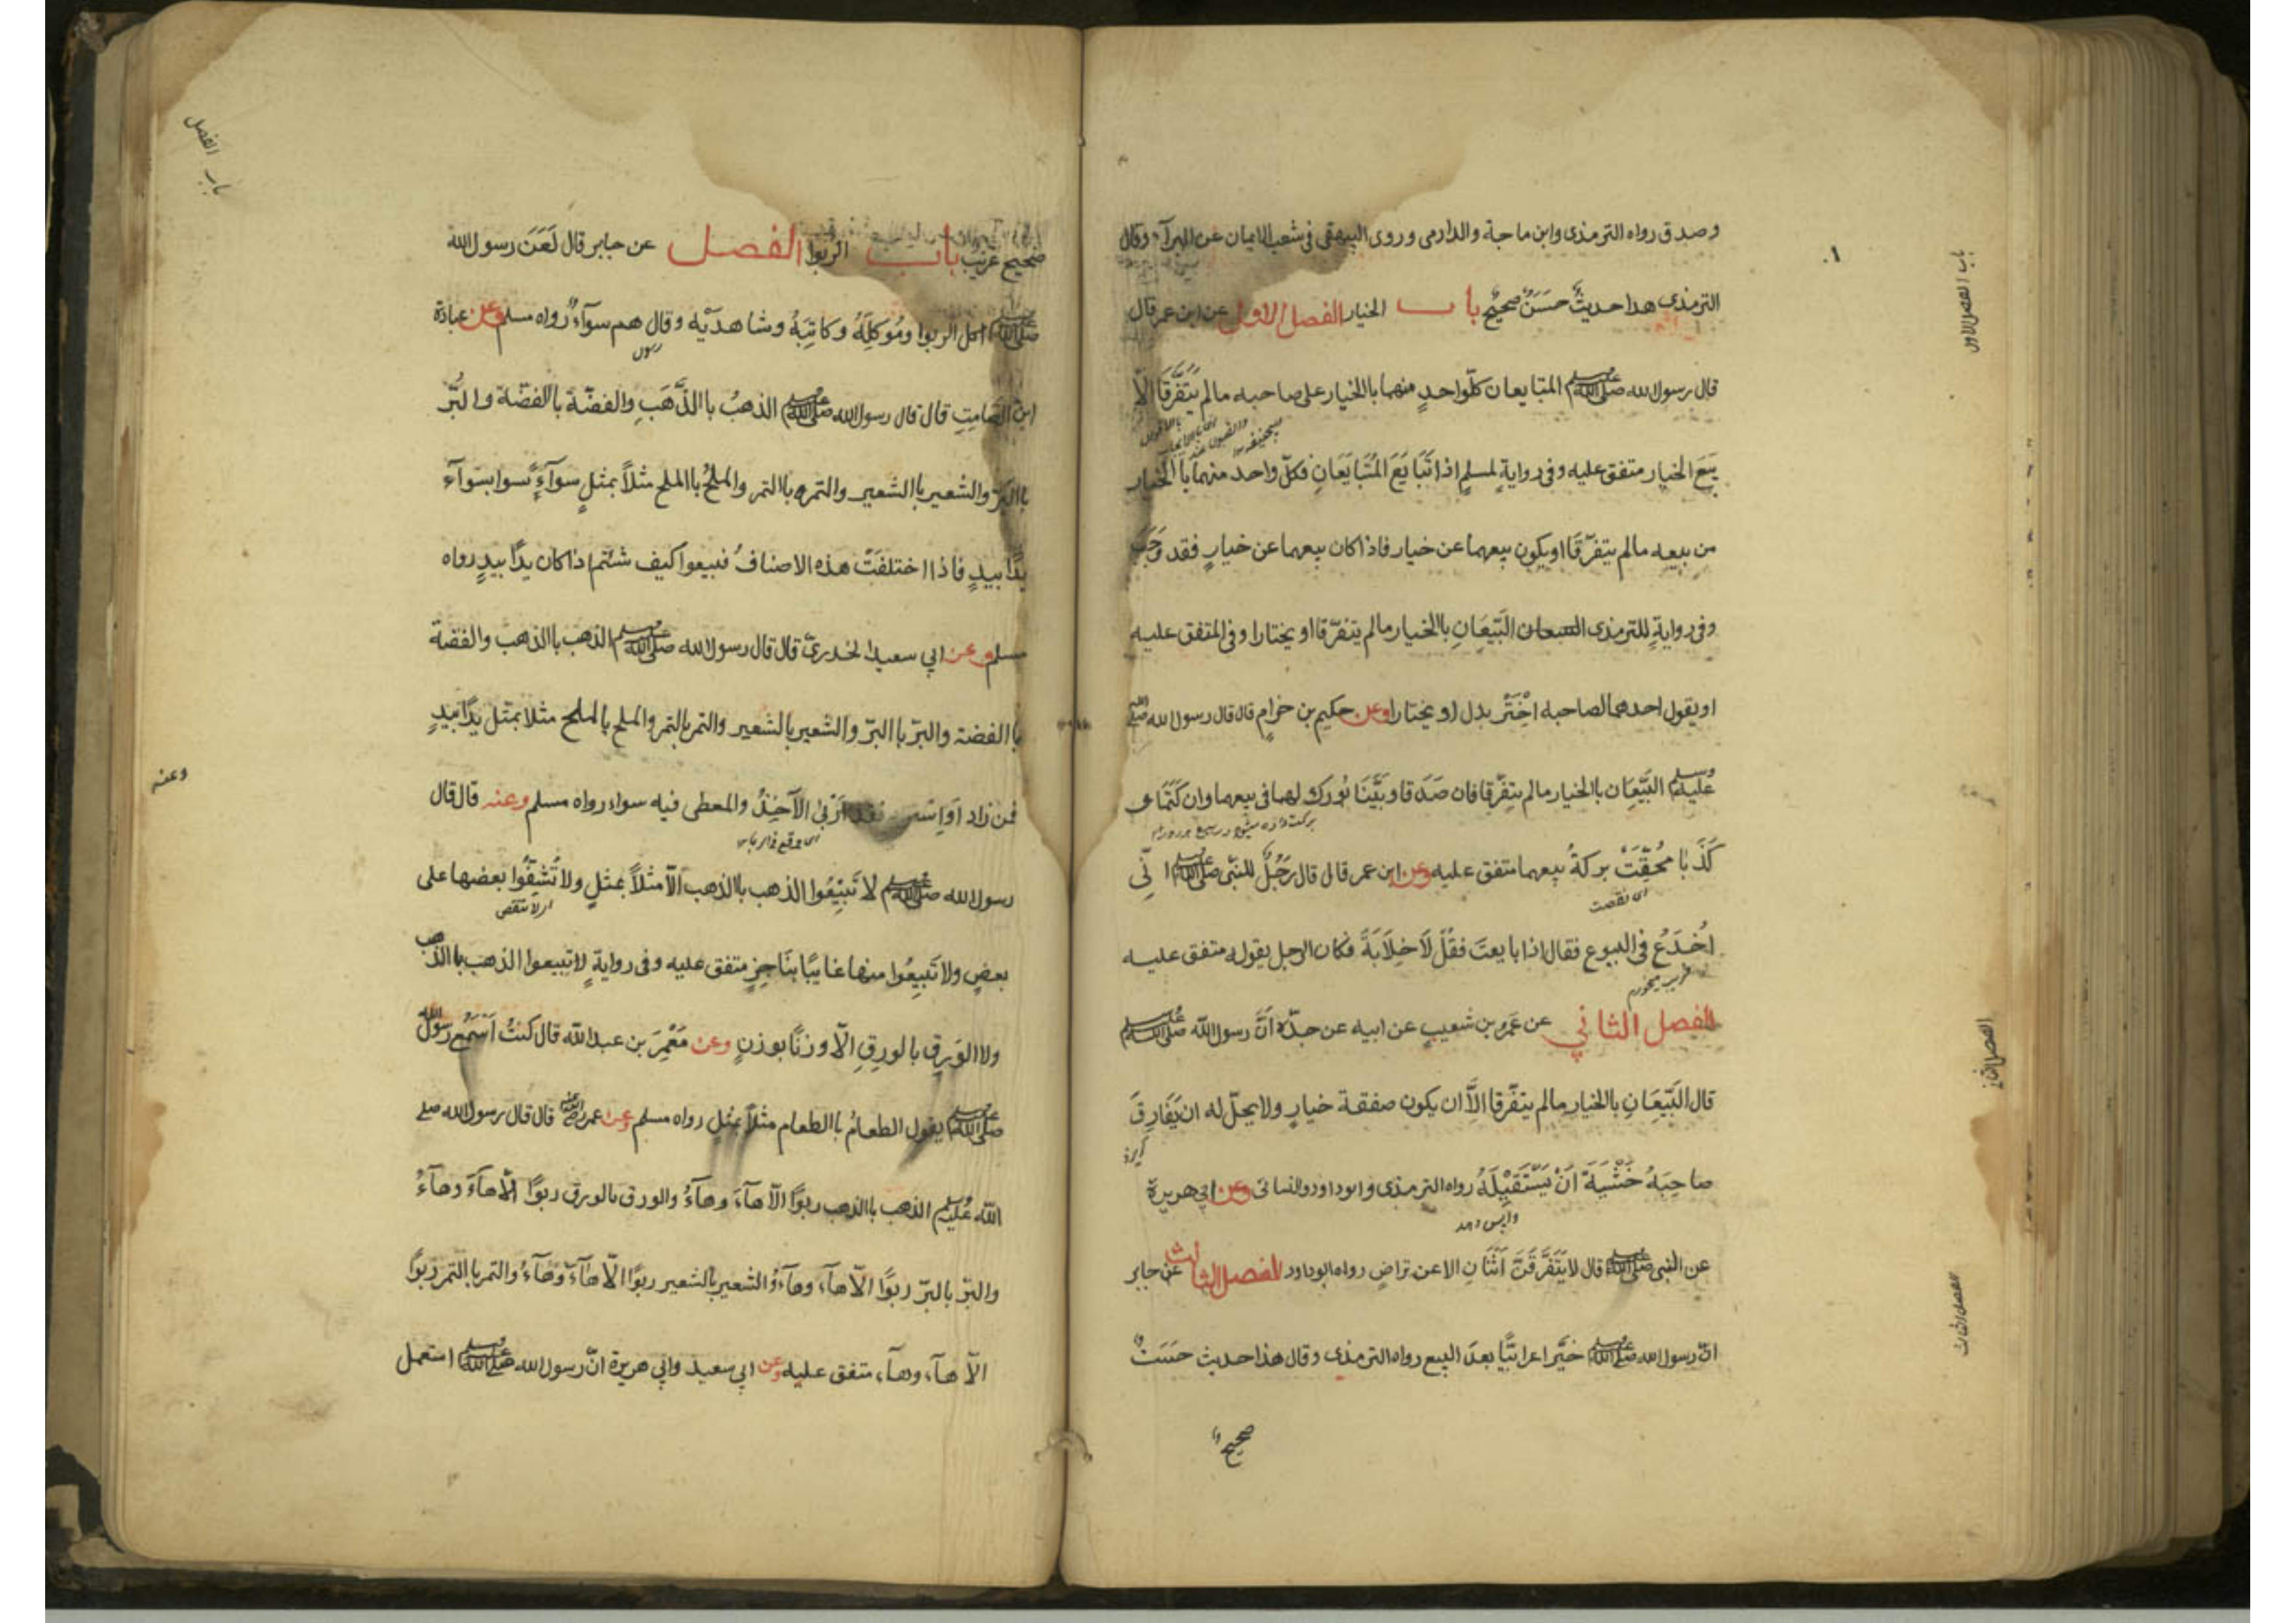 وصدق رواه الترمذى وابن ماجة والدارمى وروى البيهقى فى شعب الايمان عن البرآء وقال
الترمذى هذا حديثٌ حَسَنٌ صحيحٌ باب الخيار الفصل الاول عن ابن عمر قال
قال رسول الله صلى الله عليه وسلم المتبايعان كلّ واحدٍ منهما باالخيار على صاحبه مالم يَتَفَرَّقَا الّا
بَيعَ الخيار متفق عليه وفى روايةٍ لمسلمٍ اذا تَبَايَعَ المُتَبَايَعَانِ فكلّ واحد منهما باالخيار
من بيعه مالم يتفرّقَا او يكون بيعهما عن خيار فاذا كان بيعهما عن خيارٍ فقد وَجَبَ
وفى روايةٍ للترمذى البَيِّعَانِ باالخيار مالم يتفرّقا او يختارا وفى المتفق عليه
او يقول احدهما لصاحبه اِخْتَرْ بدل او يختارا وعن حكيم بن حزامٍ قال قال رسول الله صلى الله
عليه وسلم البَيِّعَان باالخيار مالم يتفرّقا فان صَدَقا وبَيَّنَا بُورك لهما فى بيعهما وان كَتَمَا و
كَذَبَا مُحِقَتْ بركةُ بيعهما متفق عليه وعن ابن عمر قال قال رَجُلٌ للنبّى صلى الله عليه وسلم انّى
اى نقصت
اُخْدَعُ فى البيوع فقال اذا بايعتَ فقُلْ لَا خِلَابَةً فكان الرجل يقوله متفق عليه
الفصل الثاني عن عَمرو بن شعيبٍ عن ابيه عن جدّه اَنَّ رسول الله صلى الله عليه وسلم
قال البَيِّعَانِ باالخيار مالم يتفرّقا الاَّ ان يكون صفقة خيارٍ ولا يحلّ له ان يُفَارِقَ
صاحِبَهُ خَشْيَةَ اَنْ يَسْتَقِيْلَهُ رواه الترمذى وابوداود والنسائى وعن ابي هريرة
عن النبى صلى الله عليه وسلم قال لا يَتَفَرَّقَنَّ اثْنَانِ الا عن تراضٍ رواه ابوداود الفصل الثالث عن جابر
انّ رسول الله صلى الله عليه وسلم خيَّر اعرابيًّا بعدَ البيع رواه الترمذى وقال هذا حديث حَسَنٌ
صحيح
باب الفصل الاول
الفصل الثانى
الفصل الثالث
صحيح غريب باب الربوا الفصل عن جابر قال لَعَنَ رسول الله
صلى الله عليه وسلم اكل الربوا ومُوكِلَهُ وكاتِبَهُ وشاهدَيْه وقال هم سوآءٌ رواه مسلم وعن عبادة
ابن الصَّامِتِ قال قال رسول الله صلى الله عليه وسلم الذهبُ باالذَّهَبِ والفضّة باالفضّة والبُرّ
باالبُرّ والشعير باالشعير والتمر باالتمر والملحُ باالملح مثلاً بمثلٍ سوآءً بسوآء
يدًا بيدٍ فاذا اختلفَتْ هذه الاصنافُ فبيعوا كيف شئتم اذا كان يدًا بيدٍ رواه
مسلم وعن ابي سعيد الخدريّ قال قال رسول الله صلى الله عليه وسلم الذهب باالذهب والفضة
باالفضة والبرّ باالبرّ والشعير بالشعير والتمر بالتمر والملح بالملح مثلا بمثل يدًا بيدٍ
فمن زاد اَوِ فقد اَرْبىٰ الآخِذُ والمعطى فيه سواء رواه مسلم وعنه قال قال
رسول الله صلى الله عليه وسلم لا تَبِيْعُوا الذهب باالذهب الّا مثلاً بمثلٍ ولا تُشِفُّوا بعضها على
بعضٍ ولا تَبِيْعُوا منها غايبًا بنَاجِزٍ متفق عليه وفى روايةٍ لا تبيعوا الذهب باالذهب
ولا الوَرِقِ بالورِقِ الّا وزنًا بوزنٍ وعن مَعْمَرِ بن عبد الله قال كنتُ اَسْمَعُ رسول الله
صلى الله عليه وسلم يقول الطعامُ باالطعام مثلاً بمثلٍ رواه مسلم وعن عمر رضى الله عنه قال قال رسول الله صلى
الله عليه وسلم الذهب باالذهب ربوًا الّا هآءَ وهآءَ والورق بالورق ربوًا الّا هآءَ وهآءَ
والبرّ بالبرّ ربوًا الّا هآء وهآء والشعير بالشعير ربوًا الّا هآءَ وهآءَ والتمر باالتمر ربوًا
الّا هآء وهآء متفق عليه وعن ابي سعيد وابي هريرة انّ رسول الله صلى الله عليه وسلم استعمل
باب الفصل
وعنه